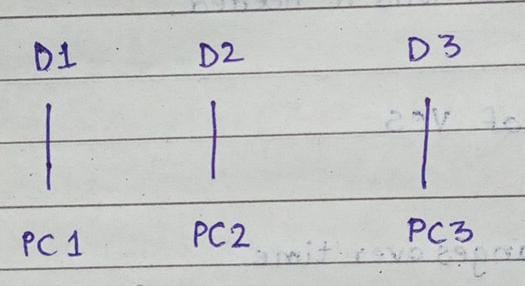 D1 D2 D3
PC1 PC2 PC3